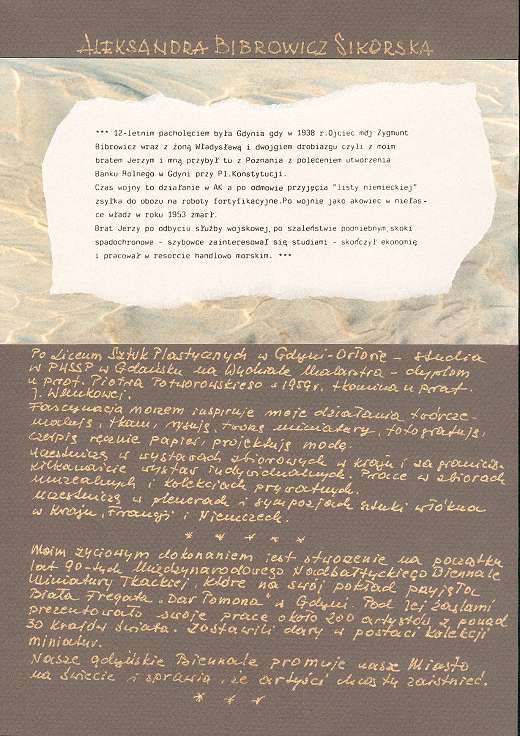 ALEKSANDRA BIBROWICZ SIKORSKA
*** 12-letnim pacholęciem była Gdynia gdy w 1938 r.Ojciec mój Zygmunt
Bibrowicz wraz z żoną Władysławą i dwojgiem drobiazgu czyli z moim
bratem Jerzym i mną przybył tu z Poznania z poleceniem utworzenia
Banku Rolnego w Gdyni przy Pl.Konstytucji.
Czas wojny to działanie w AK a po odmowie przyjęcia "listy niemieckiej"
zsyłka do obozu na roboty fortyfikacyjne.Po wojnie jako akowiec w niełas-
ce władz w roku 1953 zmarł.
Brat Jerzy po odbyciu służby wojskowej,po szaleństwie podniebnym,skoki
spadochronowe - szybowce zainteresował się studiami - skończył ekonomię
i pracował w resorcie handlowo morskim. ***
Po Liceum Sztuk Plastycznych w Gdyni-Orłowie – studia
w PWSSP w Gdańsku na Wydziale Malarstwa – dyplom
u prof. Piotra Potworowskiego w 1959r, tkanina u prof.
J. Wnukowej.
Fascynacja morzem inspiruje moje działania twórcze –
maluję, tkam, rysuję, tworzę miniatury, fotografuję,
czerpię ręcznie papier, projektuję modę.
Uczestniczę w wystawach zbiorowych w kraju i za granicą.
Kilkanaście wystaw indywidualnych. Prace w zbiorach
muzealnych i kolekcjach prywatnych.
Uczestniczę w plenerach i sympozjach sztuki włókna
w kraju, Francji i Niemczech.
* * * * *
Moim życiowym dokonaniem jest stworzenie na początku
lat 90-tych Międzynarodowego Nadbałtyckiego Biennale
Miniatury Tkackiej, które na swój pokład przyjęła
Biała Fregata „Dar Pomorza" w Gdyni. Pod jej żaglami
prezentowało swoje prace około 200 artystów z ponad
30 krajów świata. Zostawili dary w postaci kolekcji
miniatur.
Nasze gdyńskie Biennale promuje nasze Miasto
na świecie i sprawia, że artyści chcą tu zaistnieć.
* * *